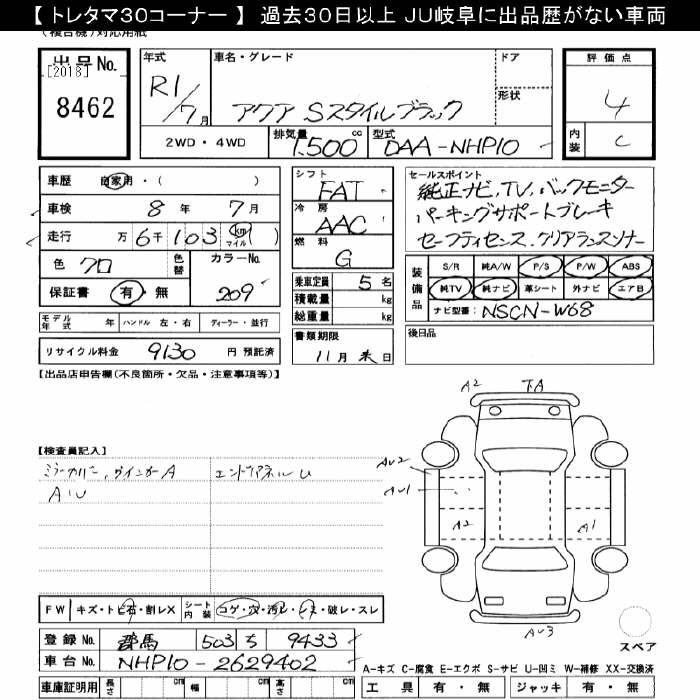 【 トレタマ30コーナー 】 過去30日以上 JU岐阜に出品歴がない車両
(複合機)対応用紙
出品No.
[2018]
8462
年式
R1/7月
車名・グレード
アクア Sスタイルブラック
ドア
形状
2WD・4WD
排気量
1,500 cc
型式
DAA-NHP10
評価点
4
内装
C
車歴 自家用・( )
車検 8年 7月
走行 万6千103 km マイル ( )
色 クロ
色替
カラーNo.
209
保証書 有・無
モデル年式 年 ハンドル 左・右 ディーラー・並行
リサイクル料金 9130 円 預託済
シフト
FAT
冷房
AAC
燃料
G
乗車定員 5名
積載量 kg
総重量 kg
書類期限
11月末日
セールスポイント
純正ナビ,TV,バックモニター
パーキングサポートブレーキ
セーフティセンス,クリアランスソナー
装備品
S/R 純A/W P/S P/W ABS
純TV 純ナビ 革シート 外ナビ エアB
ナビ型番: NSCN-W68
後日品
【出品店申告欄(不良箇所・欠品・注意事項等)】
【検査員記入】
ミラーカバー,ウインカーA
エンドパネルU
A・U
A2
TA
AU2
AU1
A2
A1
AU3
スペア
FW キズ・トビ石・割レX
シート内装 コゲ・穴・汚レ・シミ・破レ・スレ
登録No. 群馬 503 ち 9433
車台No. NHP10-2629402
車庫証明用 長さ cm 幅 cm 高さ cm
A-キズ C-腐食 E-エクボ S-サビ U-凹ミ W-補修 XX-交換済
工具 有・無 ジャッキ 有・無